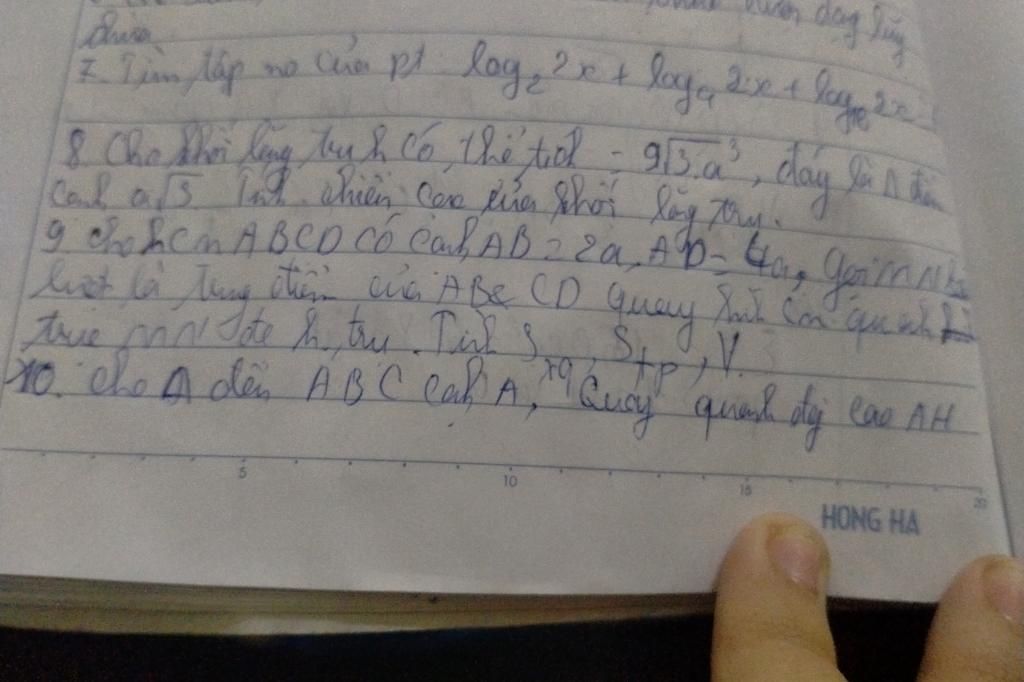 7. Tìm tập no của pt log₂ 2x + log₄ 2x + log₁₆ 2x =
8. Cho khối lăng trụ có thể tích = 9√3.a³, đáy là Δ đều
cạnh a√3. Tính chiều cao của khối lăng trụ.
9 cho hcn ABCD có cạnh AB = 2a, AD = 4a, gọi M N
lượt là trung điểm của AB & CD quay hình cn quanh
trục MN đc h. trụ. Tính Sxq, Stp, V.
10. cho Δ đều ABC cạnh A, Quay quanh đg cao AH
5 10 15 20
HONG HA